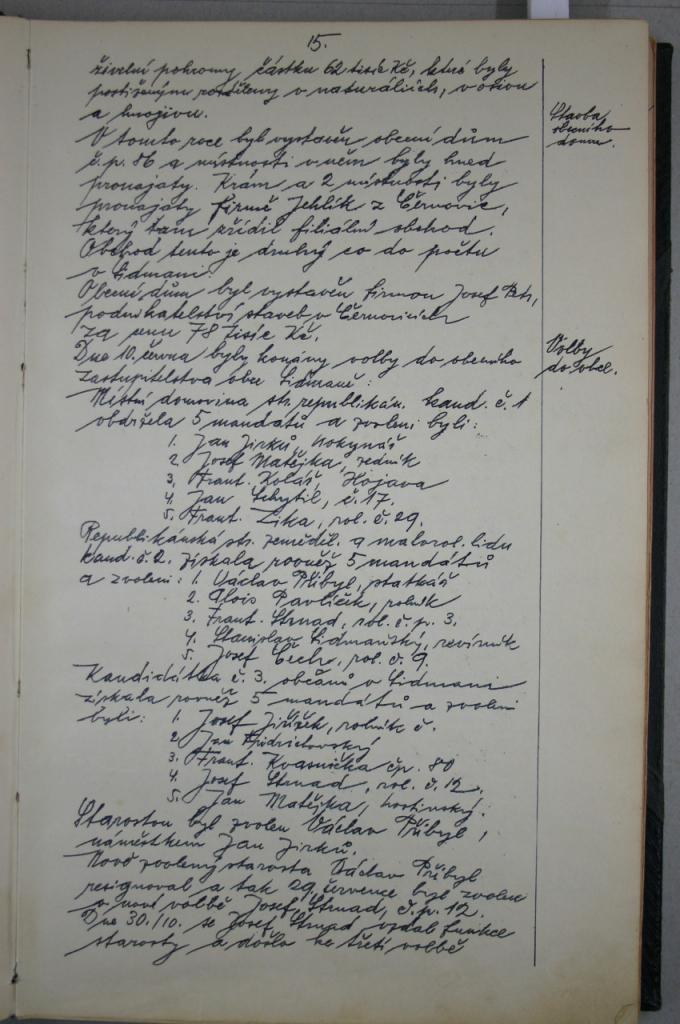 15.
živelní pohromy částku 62 tisíc Kč, které byly
postiženým rozděleny v naturáliích, v osivu
a hnojivu.
V tomto roce byl vystavěn obecní dům
č.p. 86 a místnosti v něm byly hned
pronajaty. Krám a 2 místnosti byly
pronajaty firmě Jehlík z Černovic,
který tam zřídil filiální obchod.
Obchod tento je druhý co do počtu
v Lidmani.
Stavba
obecního
domu.
Obecní dům byl vystavěn firmou Josef
podnikatelství staveb v Černovicích
za cenu 78 tisíc Kč.
Dne 10. června byly konány volby do obecního
zastupitelstva obce Lidmaně:
Volby
do zobel.
Místní domovina str. republikán. kand. č. 1
obdržela 5 mandátů a zvoleni byli:
1. Jan Jirků, hokynář
2. Josef Matějka, rolník
3. Frant. Kolář, Hojava
4. Jan č. 17.
5. Frant. Zika, rol. č. 29.
Republikánská str. zeměděl. a malorol. lidu
kand. č. 2. získala rovněž 5 mandátů
a zvoleni: 1. Václav Přibyl, statkář
2. Alois Pavlíček, rolník
3. Frant. Strnad, rol. č. p. 3.
4. Stanislav Lidmaňský, revírník
5. Josef Čech, rol. č. 9.
Kandidátka č. 3. občanů v Lidmani
získala rovněž 5 mandátů a zvoleni
byli: 1. Josef Jiříček, rolník č.
2. Jan Fridrichovský
3. Frant. Kvasnička čp. 80
4. Josef Strnad, rol. č. 12.
5. Jan Matějka, hostinský.
Starostou byl zvolen Václav Přibyl,
náměstkem Jan Jirků.
Nově zvolený starosta Václav Přibyl
resignoval a tak 29. července byl zvolen
v nové volbě Josef Strnad, č.p. 12.
Dne 30./10. se Josef Strnad vzdal funkce
starosty a došlo ke třetí volbě